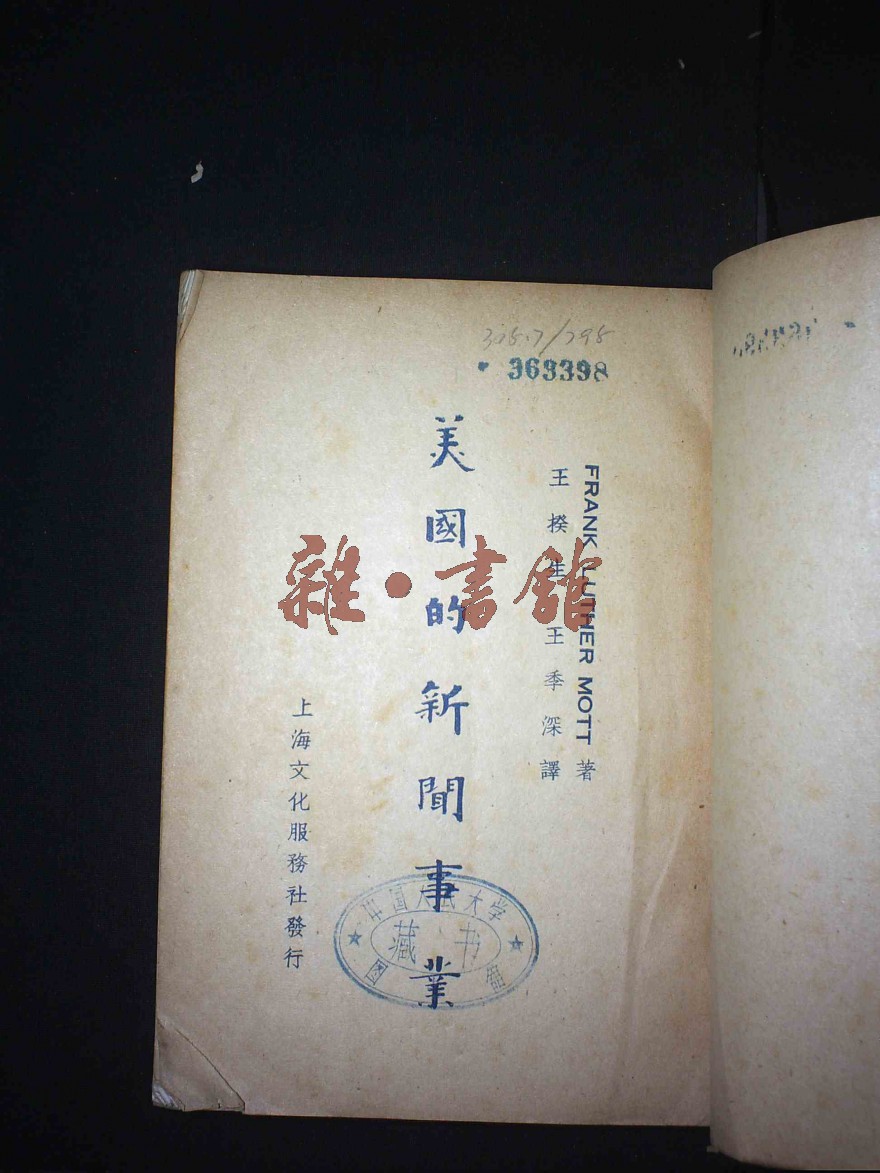 363398
FRANK LUTHER MOTT 著
王揆生 王季深 譯
美國的新聞事業
上海文化服務社發行
中国人民大学
藏书
图 馆
雜·書館